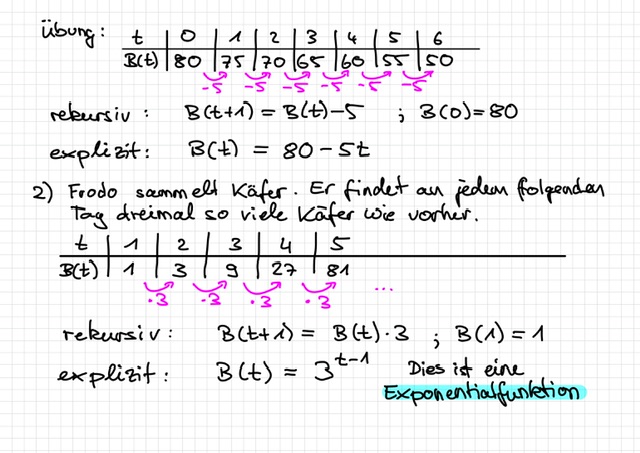 Übung: t | 0 | 1 | 2 | 3 | 4 | 5 | 6
B(t) | 80 | 75 | 70 | 65 | 60 | 55 | 50
-5 -5 -5 -5 -5 -5
rekursiv: B(t+1) = B(t)-5 ; B(0)=80
explizit: B(t) = 80-5t
2) Frodo sammelt Käfer. Er findet an jedem folgenden
Tag dreimal so viele Käfer wie vorher.
t | 1 | 2 | 3 | 4 | 5
B(t) | 1 | 3 | 9 | 27 | 81
·3 ·3 ·3 ·3 ...
rekursiv: B(t+1) = B(t)·3 ; B(1)=1
explizit: B(t) = 3^(t-1) Dies ist eine
Exponentialfunktion